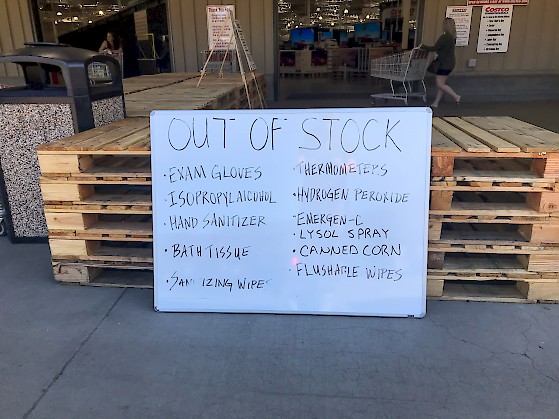 OUT OF STOCK
• EXAM GLOVES
• ISOPROPYL ALCOHOL
• HAND SANITIZER
• BATH TISSUE
• SAN IZING WIPE
• THERMOMETERS
• HYDROGEN PEROXIDE
• EMERGEN-C
• LYSOL SPRAY
• CANNED CORN
• FLUSHABLE WIPES
COSTCO